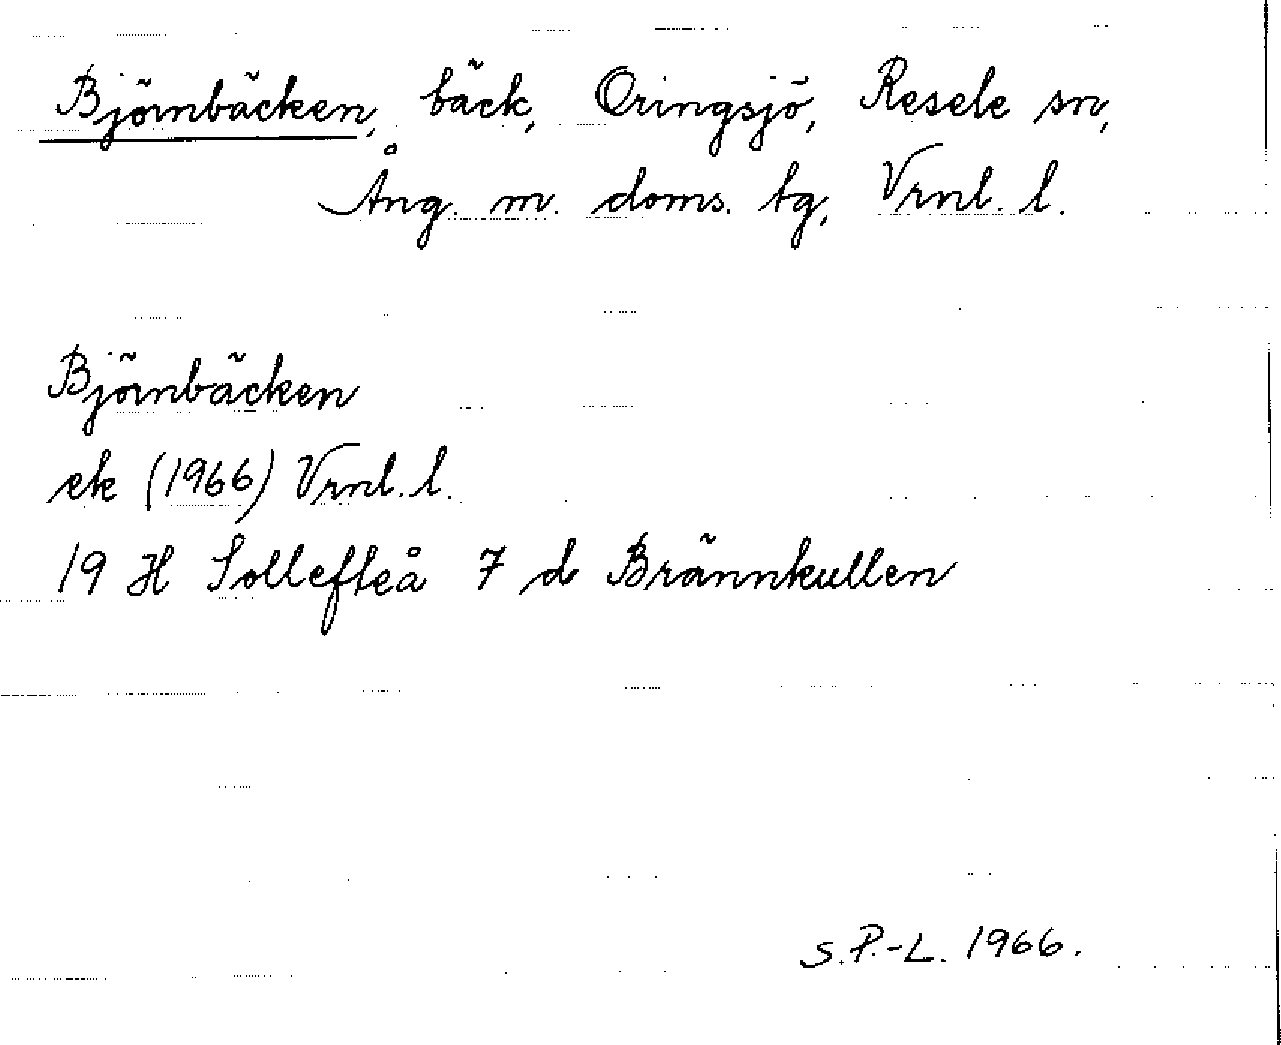 Björnbäcken, bäck, Oringsjö, Resele sn,
Ång. m. doms. tg, Vrnl. l.
Björnbäcken
ek (1966) Vrnl. l.
19 H Sollefteå 7 d Brännkullen
S.P.-L. 1966.